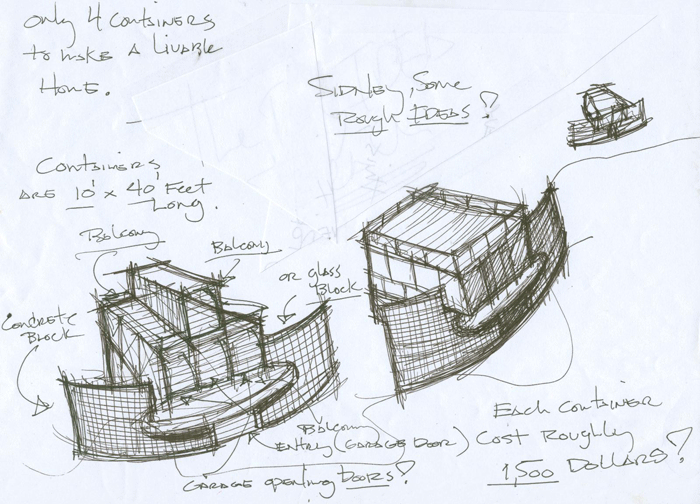 Only 4 Containers
to make a Livable
Home.
Sidney, Some
Rough Ideas!
Containers
are 10' x 40' Feet
Long.
Balcony
Balcony
or glass
Block
Concrete
Block
Balcony
Entry (Garage Door)
Garage opening Doors!
Each container
Cost Roughly
1,500 Dollars!